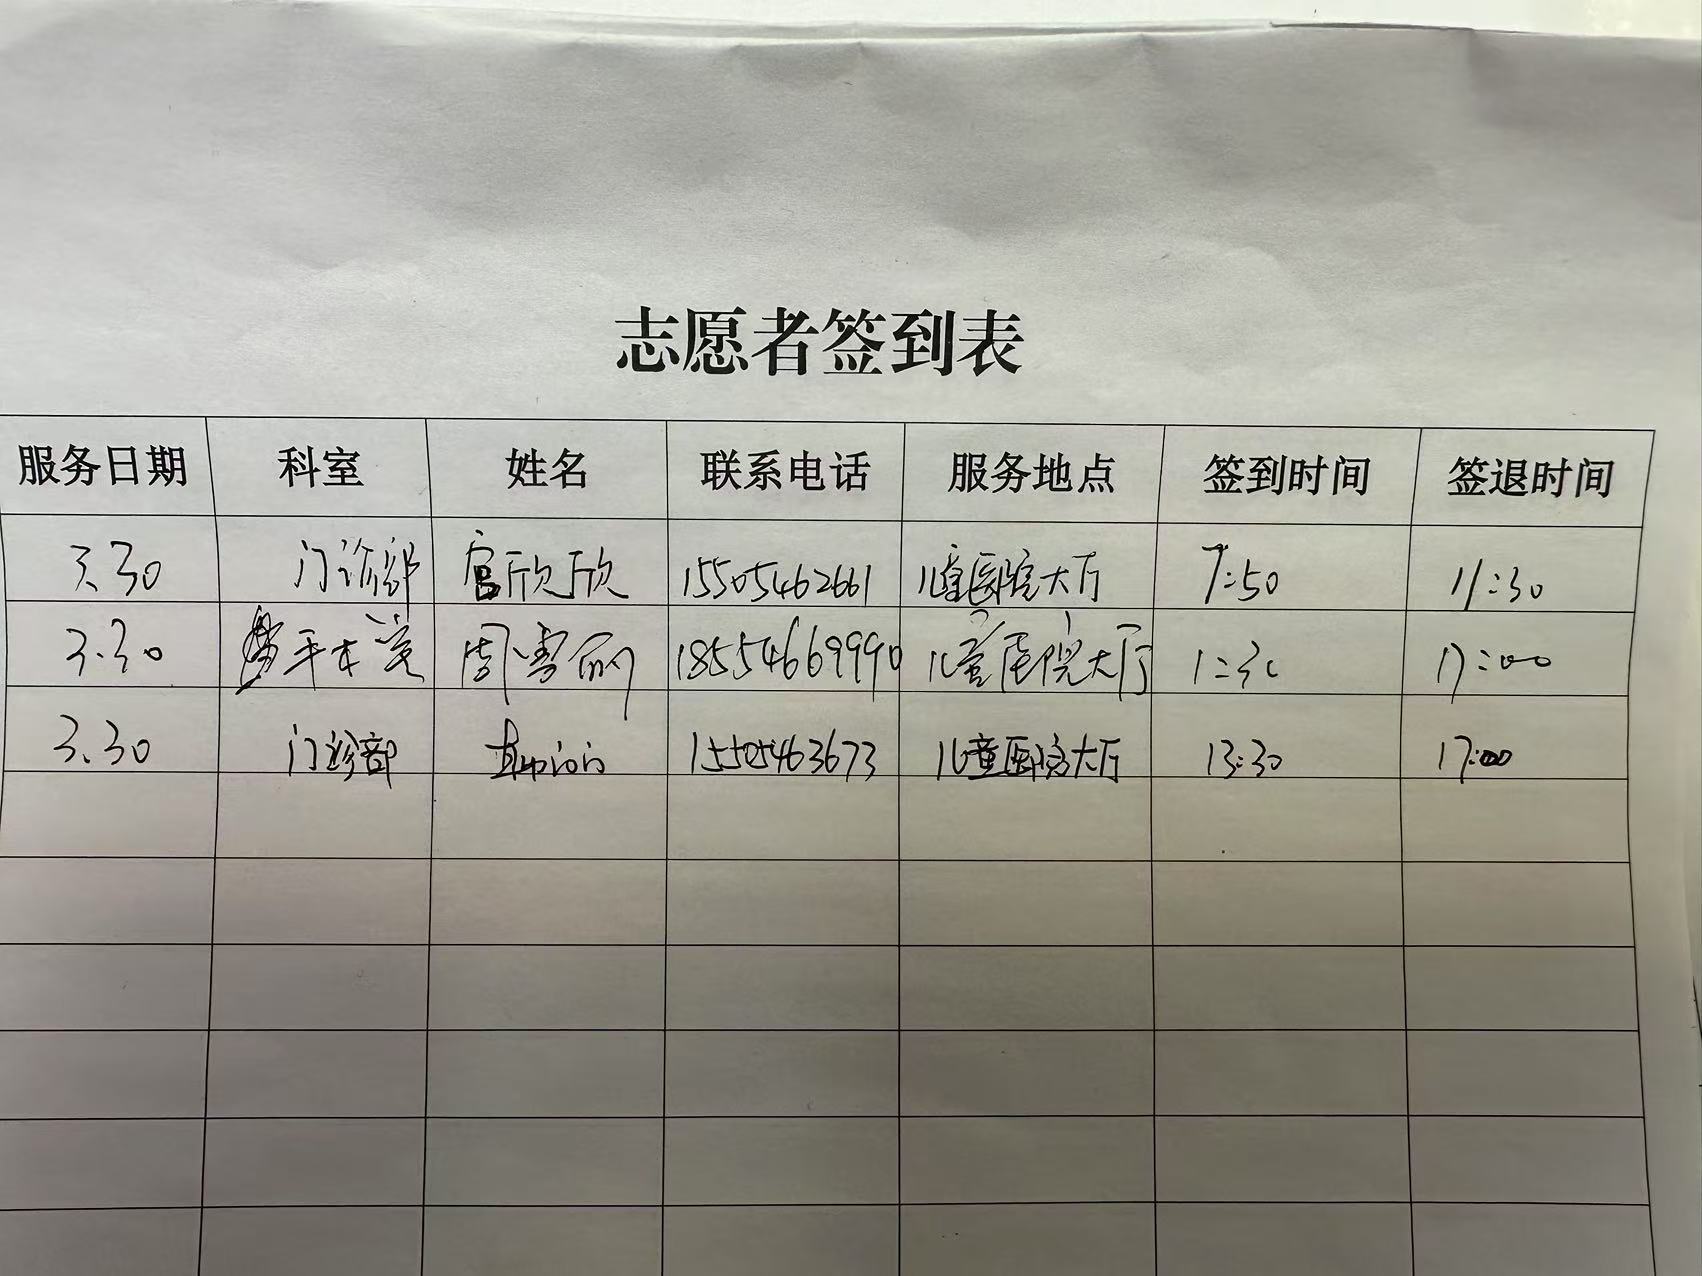 志愿者签到表
服务日期 科室 姓名 联系电话 服务地点 签到时间 签退时间
3.30 门诊部 宫欣欣 15505462661 儿童医院大厅 7:50 11:30
3.30 手术室 周雪丽 18554669990 儿童医院大厅 1:30 17:00
3.30 门诊部 15505463673 儿童医院大厅 13:30 17:00